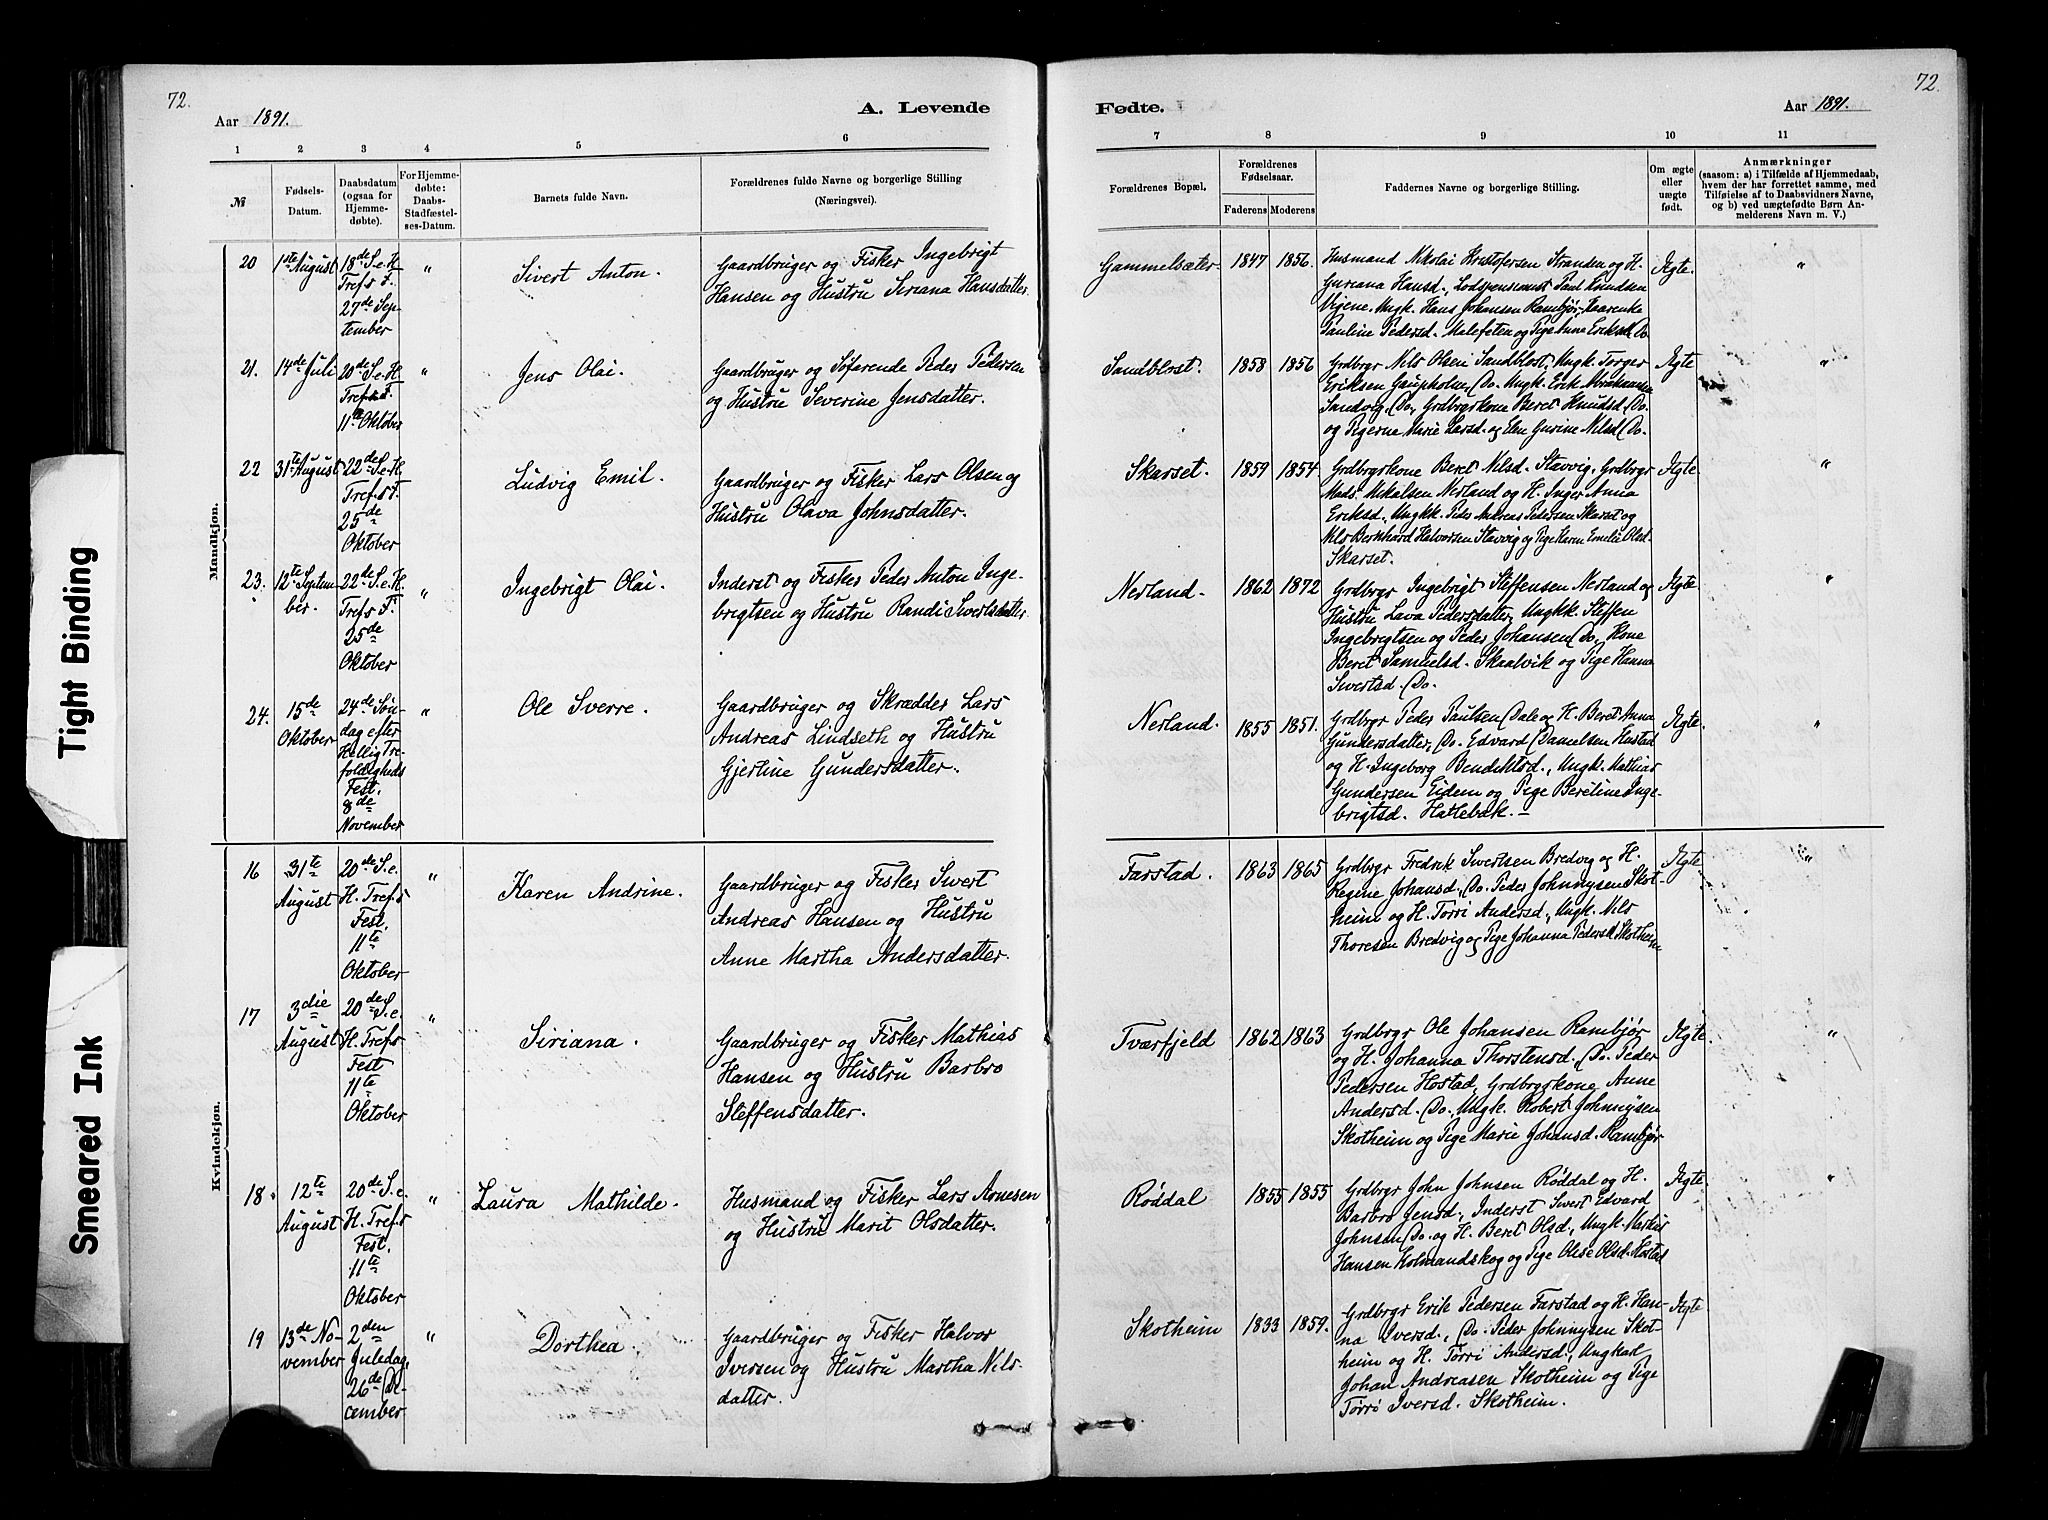 72.
Aar 1891.
A. Levende
1 2 3 4 5 6
№
Fødsels-
Datum.
Daabsdatum
(ogsaa for
Hjemme-
døbte).
For Hjemme-
døbte:
Daabs-
Stadfæstel-
ses-Datum.
Barnets fulde Navn.
Forældrenes fulde Navne og borgerlige Stilling
(Næringsvei).
Mandkjøn.
20
1ste August
18de S.e.H.
Tref.s F.
27de Sep-
tember
"
Sivert Anton.
Gaardbruger og Fisker Ingebrigt
Hansen og Hustru Siriana Hansdatter.
21.
14de Juli
20de S.e.H.
Tref.s F.
11te Oktober
"
Jens Olai.
Gaardbruger og Søfarende Peder Pedersen
og Hustru Severine Jensdatter.
22
31te August
22de S.e.H.
Tref.s F.
25de
Oktober
"
Ludvig Emil.
Gaardbruger og Fisker Lars Olsen og
Hustru Olava Johnsdatter.
23.
12te Septem-
ber.
22de S.e.H.
Tref.s F.
25de
Oktober
"
Ingebrigt Olai.
Inderst og Fisker Peder Anton Inge-
brigtsen og Hustru Randi Sivertsdatter
24.
15de
Oktober
24de Søn-
dag efter
Hellig Tre-
foldigheds
Fest.
8de
November
"
Ole Sverre.
Gaardbruger og Skrædder Lars
Andreas Lindseth og Hustru
Gjertine Gundersdatter.
Kvindekjøn.
16
31te
August
20de S.e.
H. Tref.s
Fest.
11te
Oktober
"
Karen Andrine.
Gaardbruger og Fisker Sivert
Andreas Hansen og Hustru
Anne Martha Andersdatter.
17
3die
August
20de S.e.
H. Tref.s
Fest
11te
Oktober
"
Siriana.
Gaardbruger og Fisker Mathias
Hansen og Hustru Barbro
Steffensdatter.
18.
12te
August
20de S.e.
H. Tref.s
Fest.
11te
Oktober
"
Laura Mathilde.
Husmand og Fisker Lars Arnesen
og Hustru Marit Olsdatter.
19
13de No-
vember
2den
Juledag,
26de De-
cember
"
Dorthea.
Gaardbruger og Fisker Halvor
Iversen og Hustru Martha Nils-
datter.
72.
Fødte.
Aar 1891.
7 8 9 10 11
Forældrenes Bopæl.
Forældrenes
Fødselsaar.
Faderens Moderens
Faddernes Navne og borgerlige Stilling.
Om ægte
eller
uægte
født.
Anmærkninger
(saasom: a) i Tilfælde af Hjemmedaab,
hvem der har forrettet samme, med
Tilføielse af to Daabsvidners Navne,
og b) ved uægtefødte Børn An-
melderens Navn m. V.)
Gammelsæter. 1847 1856.
Husmand Nikolai Kristofersen Stranden og H.
Guriana Hansd., Lodspensionist Paul Knudsen
Vigene. Ungk. Hans Johansen Rambjør,
Pauline Pedersd. Malefeten og Pige Anna Eriksd. Do.
Ægte.
"
Sandblost. 1858 1856
Grdbrgr Nils Olsen Sandblost, Ungk. Torger
Eriksen Gaupholm, Do. Ungk. Erik Abrahamsen
Sandvig, Do, Grdbrgrkone Beret Knudsd. Do.
og Pigerne Marie Larsd. og Elen Gurine Nilsd. Do.
Ægte
"
Skarset. 1859 1854
Grdbrgrkone Beret Nilsd. Stavvig, Grdbrgr
Mads Mikalsen Nerland og H. Inger Anna
Eriksd., Ungkk. Peder Andreas Pedersen Skarset og
Nils Bernhard Halvorsen Stavvig og Pige Karen Emilie Olsd.
Skarset.
Ægte.
"
Nerland. 1862 1872
Grdbrgr Ingebrigt Steffensen Nerland og
Hustru Lava Pedersdatter, Ungkk. Steffen
Ingebrigtsen og Peder Johansen Do, Kone
Beret Samuelsd. Skaalvik og Pige Hanna
Sivertsd. Do.
Ægte.
"
Nerland. 1855 1851.
Grdbrgr Peder Paulsen Dale og H. Beret Anna
Gundersdatter, Do. Edvard Danielsen Hustad
og H. Ingeborg Bendiktsd., Ungk. Mathias
Gundersen Eidem og Pige Beretine Inge-
brigtsd. Hatlebak. –
Ægte.
"
Farstad. 1863 1865
Grdbrgr Fredrik Sivertsen Bredvig og H.
Regine Johansd., Do. Peder Johnnysen Skot-
heim og H. Torri Andersd., Ungk. Nils
Thoresen Bredvig og Pige Johanna Pedersd. Skotheim
Ægte.
"
Tværfjeld 1862 1863
Grdbrgr Ole Johansen Rambjør
og H. Johanna Thorstensd., Do. Peder
Pedersen Hostad, Grdbrgrkone Anne
Andersd. Do., Ungk. Robert Johnnysen
Skotheim og Pige Marie Johansd. Rambjør
Ægte.
"
Røddal 1855 1855
Grdbrgr John Johnsen Røddal og H.
Barbro Jensd., Inderst Sivert Edvard
Johnsen Do. og H. Beret Olsd., Ungk.
Hansen Holmandskog og Pige Olise Olsd. Hostad
Ægte.
"
Skotheim 1833 1859.
Grdbrgr Erik Pedersen Farstad og H. Han-
na Iversd., Do. Peder Johnnysen Skot-
heim og H. Torri Andersd., Ungkarl
Johan Andreasen Skotheim og Pige
Torri Iversd. Skotheim.
Ægte
"
Tight Binding
Smeared Ink